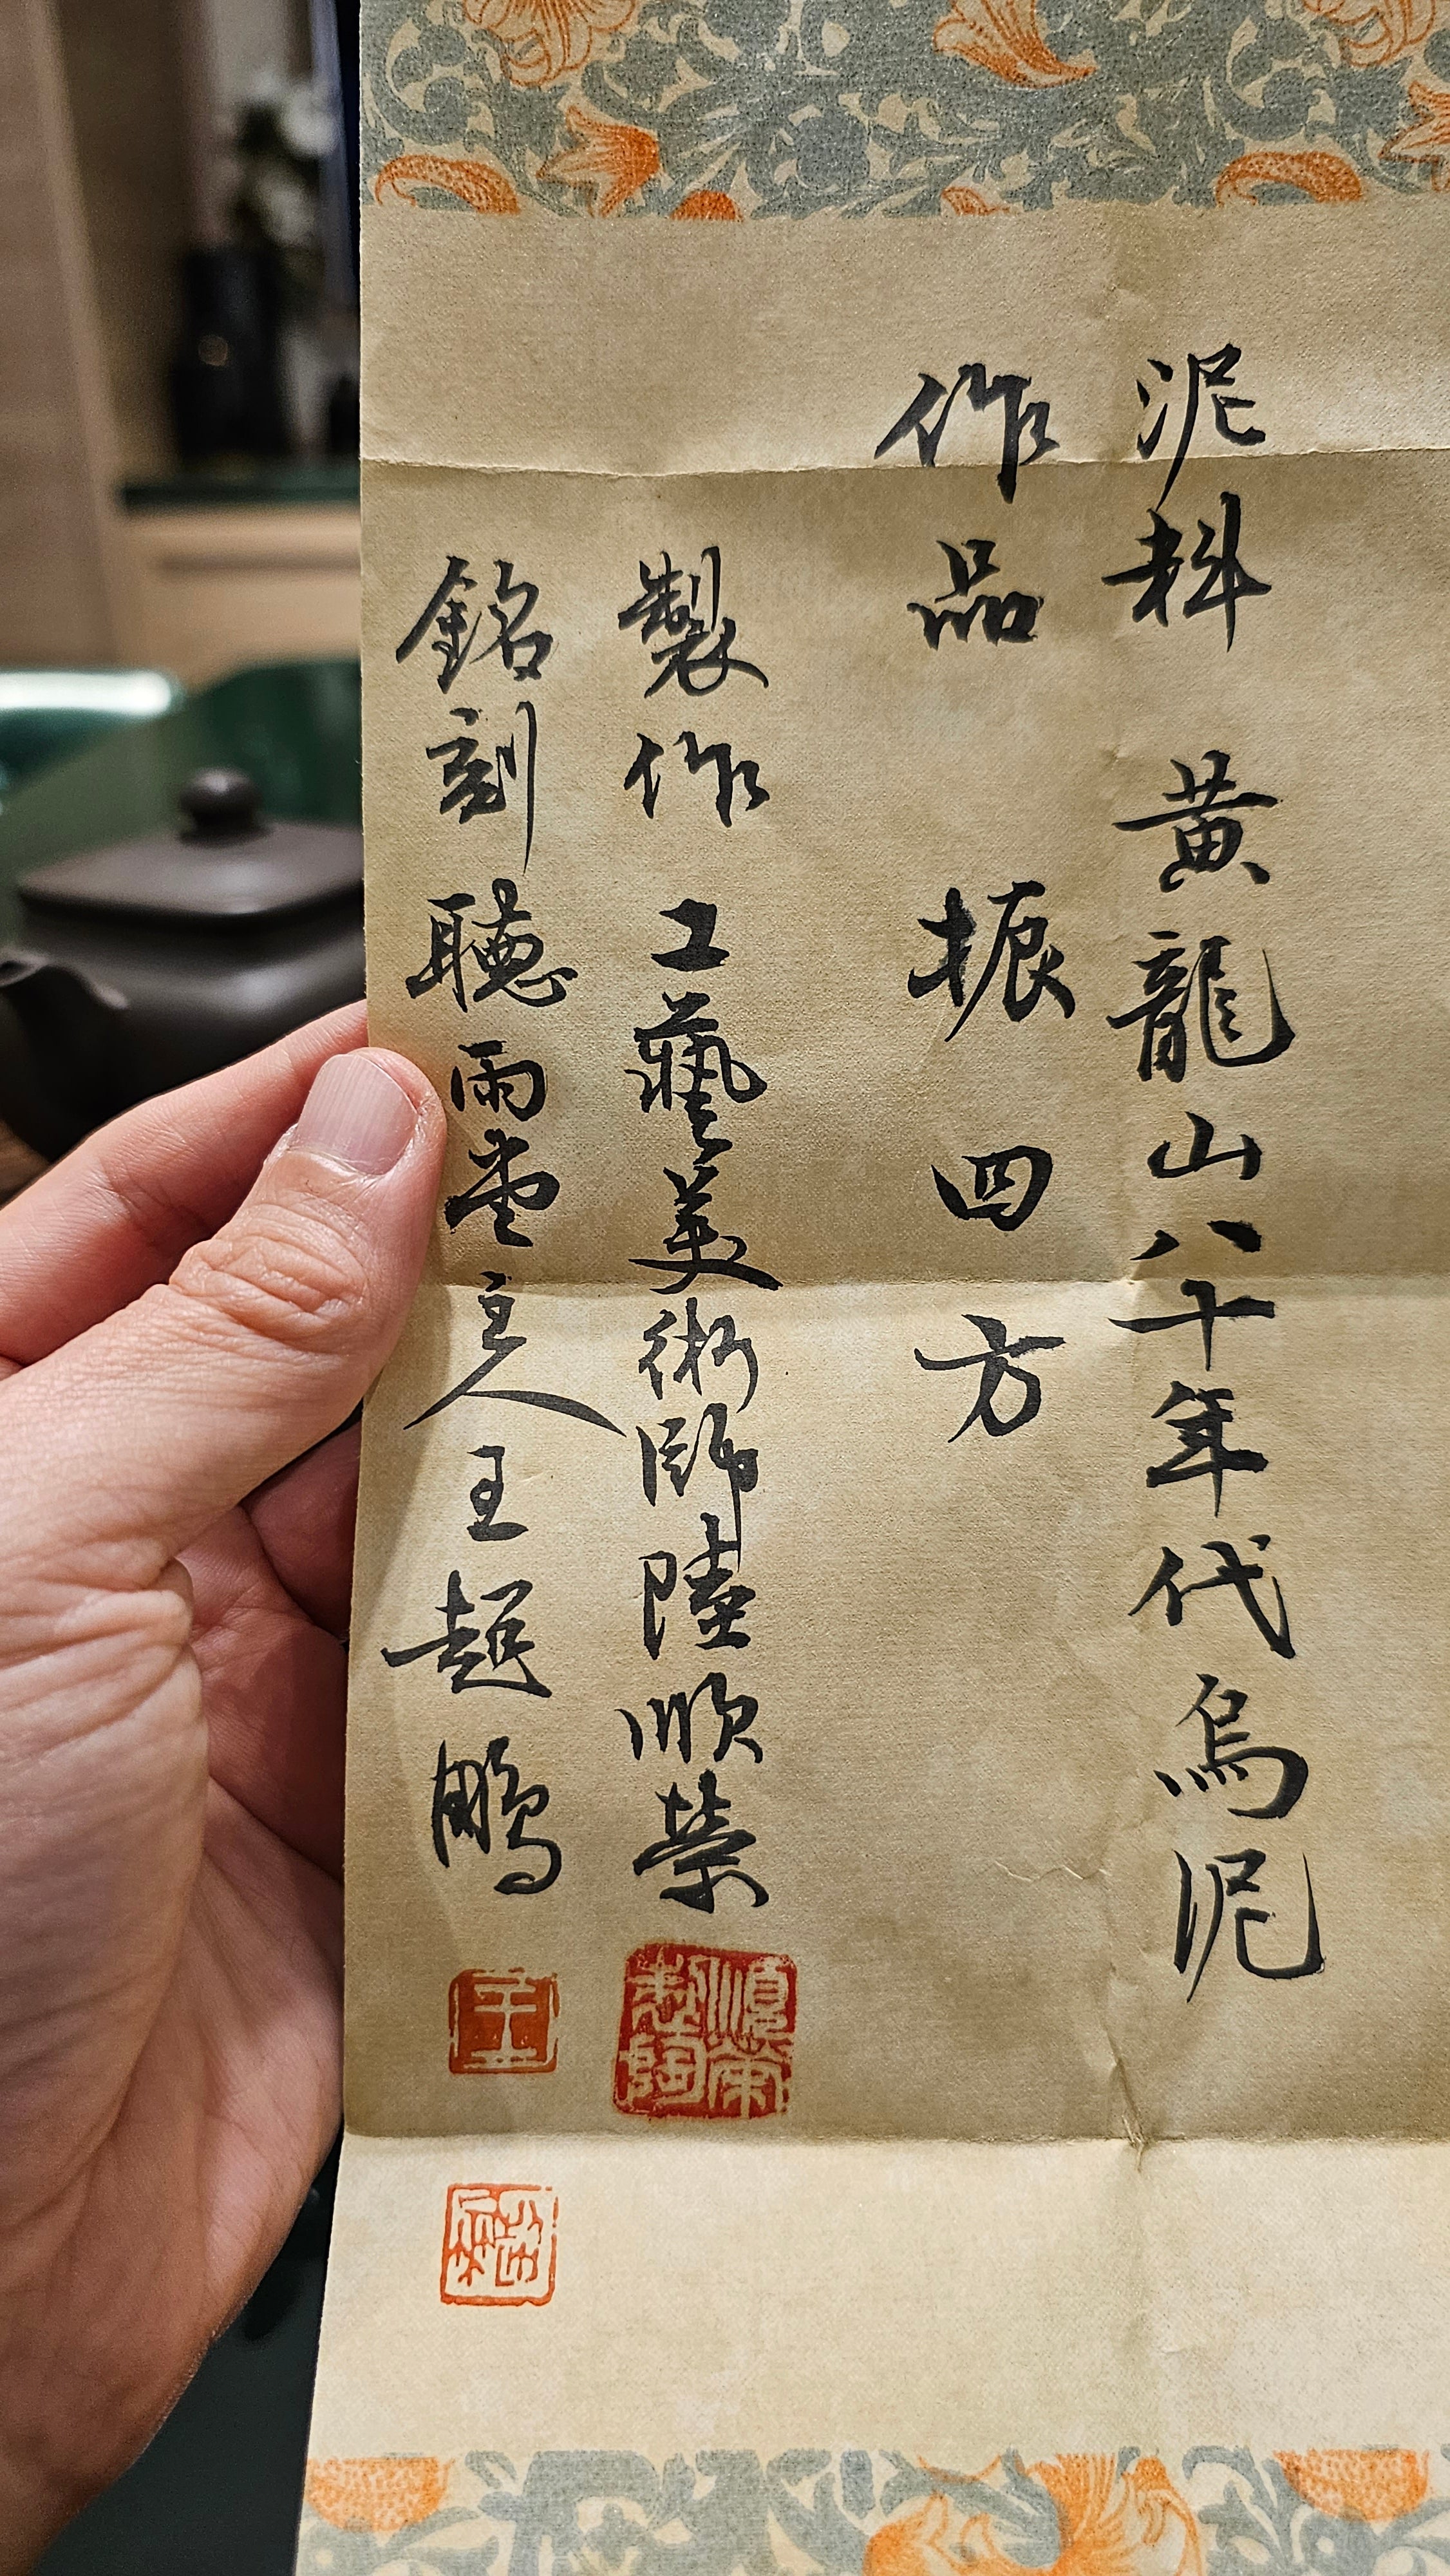 泥料 黃龍山八十年代烏泥
作品 振四方
製作 工藝美術師陸順榮
銘刻 聽雨堂主人王超鵬
順榮製陶
王